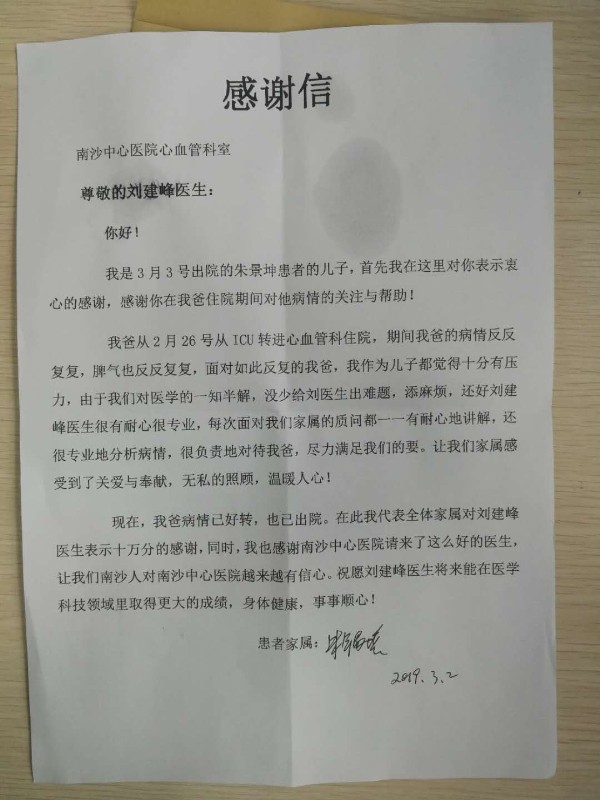 感谢信
南沙中心医院心血管科室
尊敬的刘建峰医生：
你好！
我是3月3号出院的朱景坤患者的儿子，首先我在这里对你表示衷
心的感谢，感谢你在我爸住院期间对他病情的关注与帮助！
我爸从2月26号从ICU转进心血管科住院，期间我爸的病情反反
复复，脾气也反反复复，面对如此反复的我爸，我作为儿子都觉得十分有压
力，由于我们对医学的一知半解，没少给刘医生出难题，添麻烦，还好刘建
峰医生很有耐心很专业，每次面对我们家属的质问都一一有耐心地讲解，还
很专业地分析病情，很负责地对待我爸，尽力满足我们的要。让我们家属感
受到了关爱与奉献，无私的照顾，温暖人心！
现在，我爸病情已好转，也已出院。在此我代表全体家属对刘建峰
医生表示十万分的感谢，同时，我也感谢南沙中心医院请来了这么好的医生，
让我们南沙人对南沙中心医院越来越有信心。祝愿刘建峰医生将来能在医学
科技领域里取得更大的成绩，身体健康，事事顺心！
患者家属：
2019.3.2